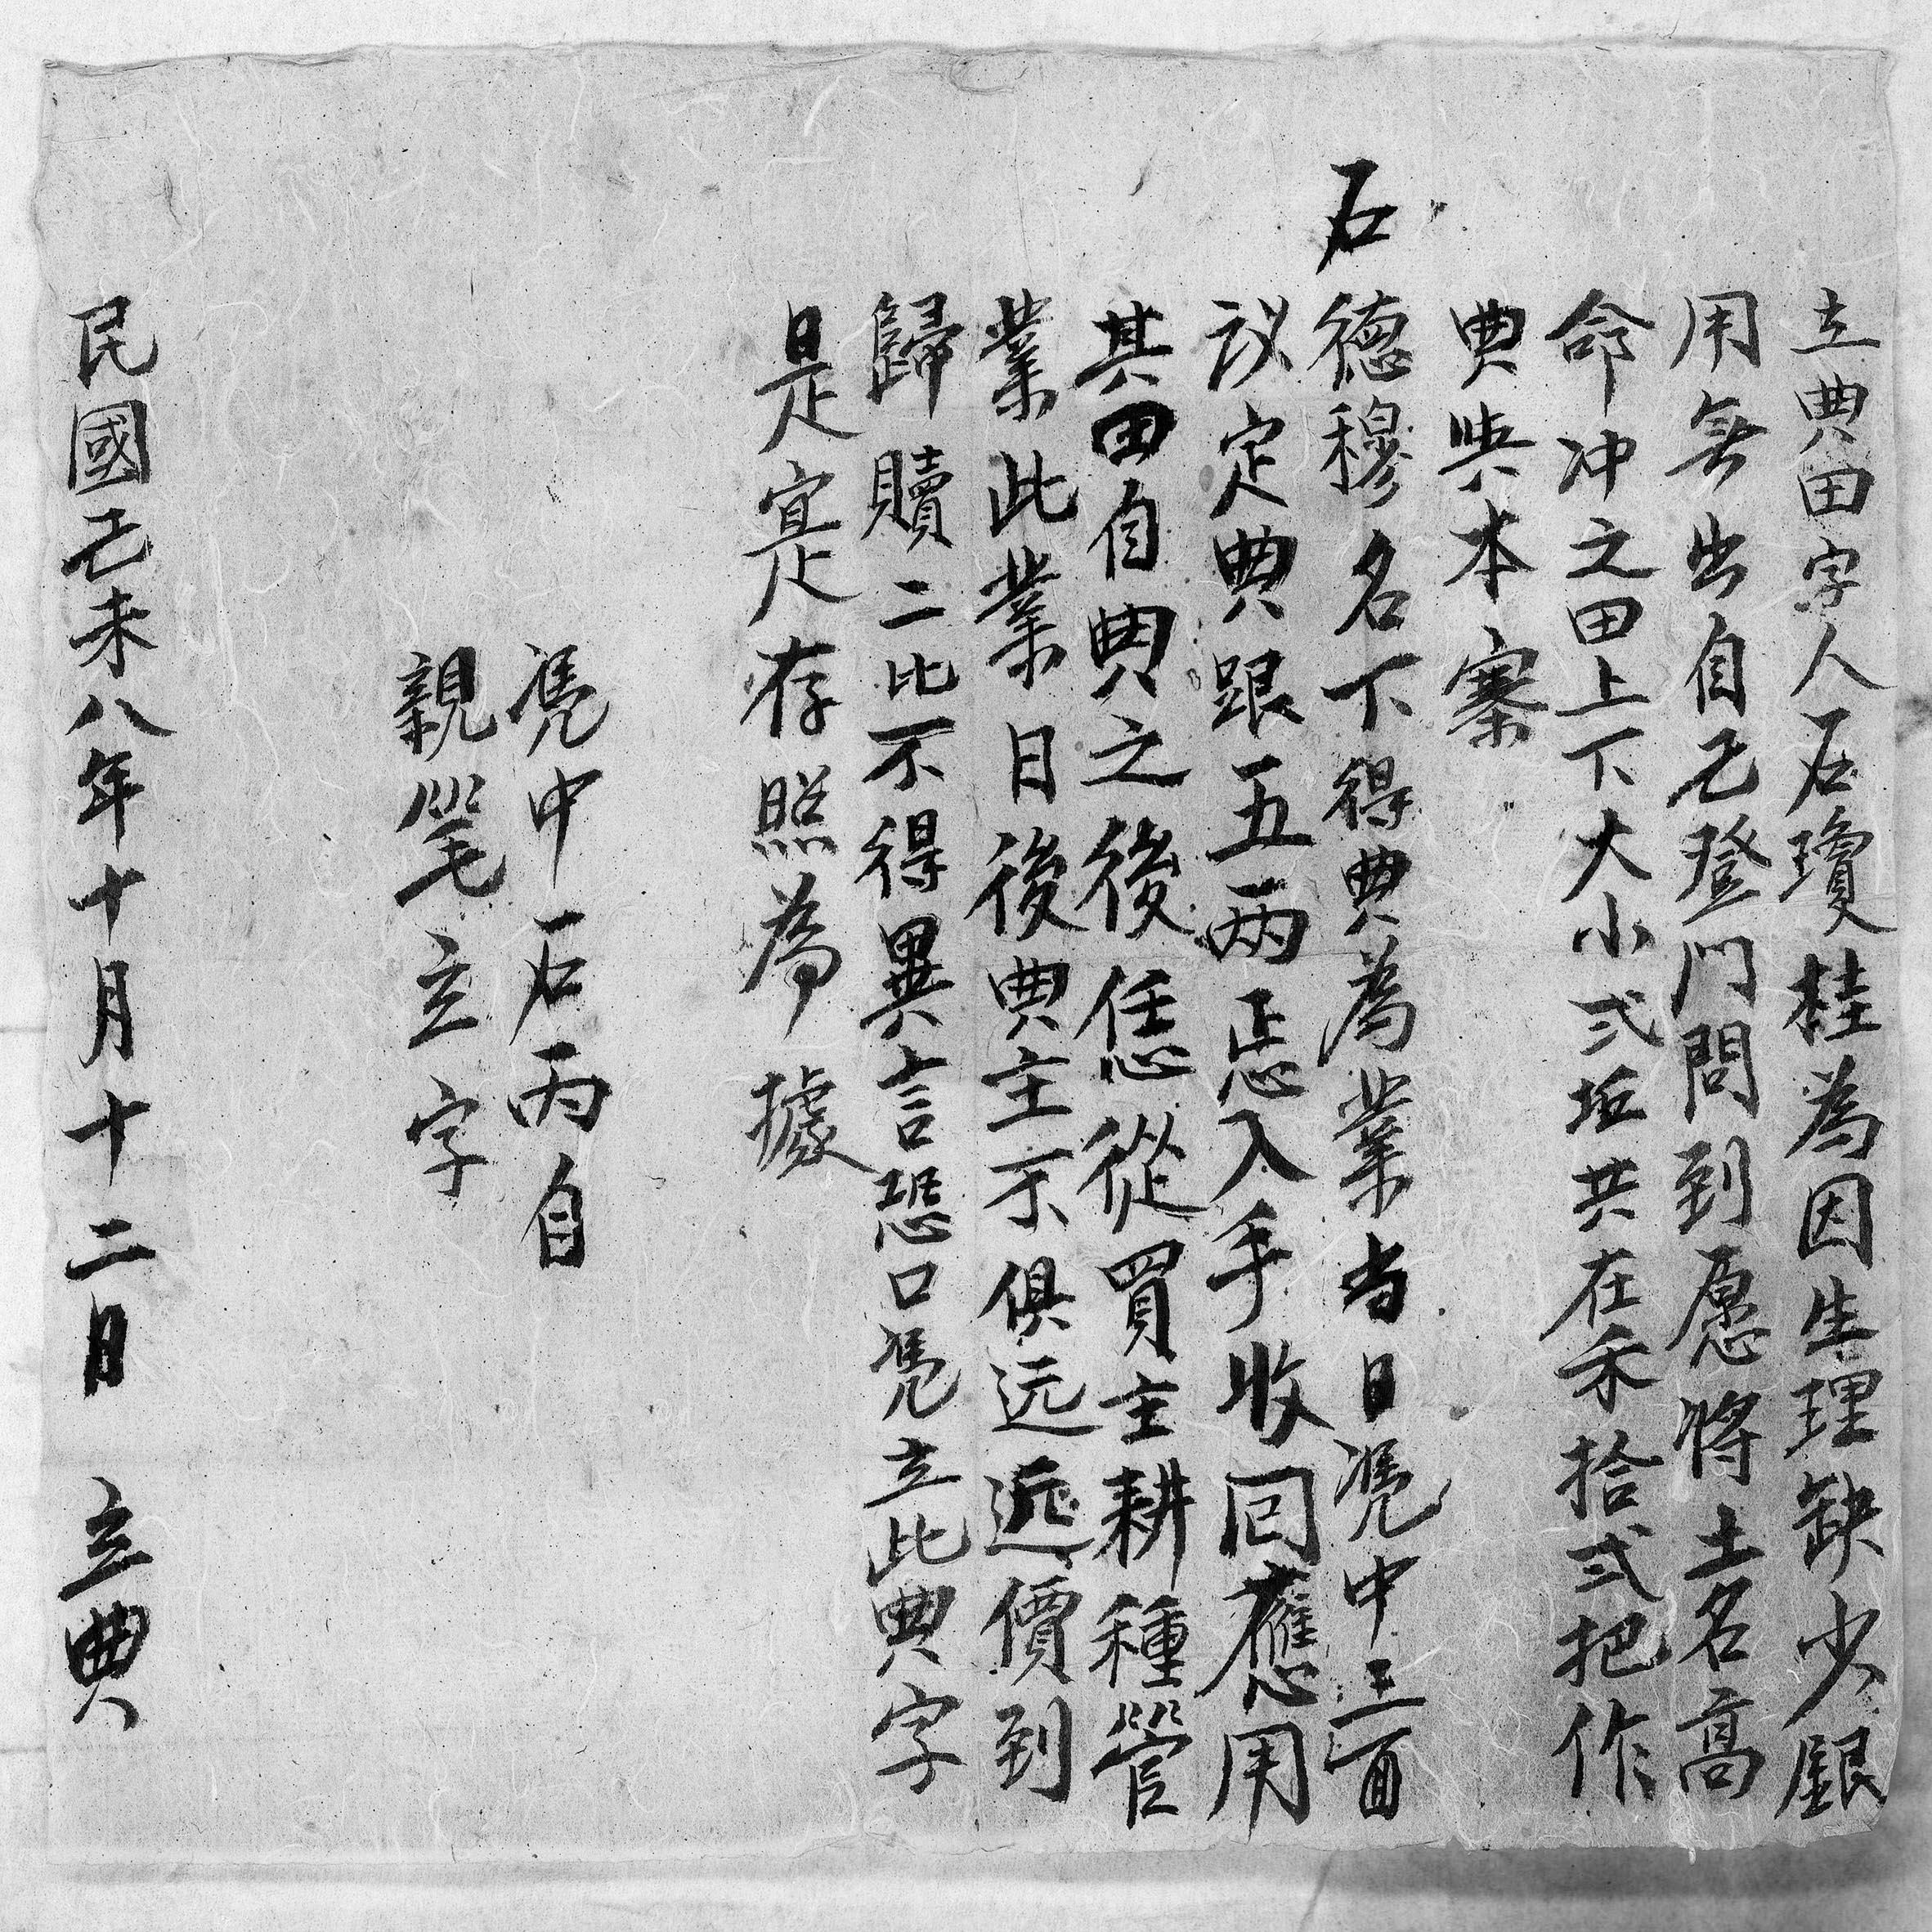 立典田字人石瓊桂為因生理缺少銀
用無出自己登门問到愿將土名高
命冲之田上下大小弍坵共在禾拾弍把作
典與本寨
石德穆名下得典為業当日凴中三面
议定典跟五两忐入手收回應用
其田自典之後恁從買主耕種管
業此業日後典主不俱远近價到
歸贖二比不得異言恐口凴立此典字
是寔存照為據
凴中石丙自
親笔立字
民國己未八年十月十二日 立典